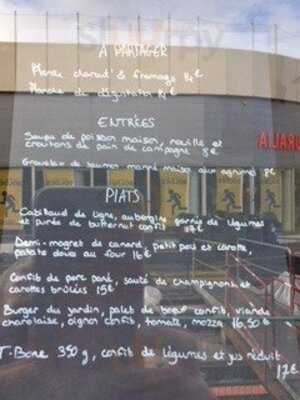 A PARTAGER
Planche charcut' & fromage 14€
Planche de dégustation 14€
ENTRÉES
Soupe de poisson maison, rouille et
croutons de pain de campagne 8€
Gravelax de saumon mariné maison aux agrumes 9€
PLATS
Cabillaud de ligne, aubergine garnie de légumes
et purée de butternut confit 17€
Demi-magret de canard, petit pois et carotte,
patate douce au four 16€
Confit de porc pané, sauté de champignons et
carottes brûlées 15€
Burger du jardin, palet de bœuf confit, viande
charolaise, oignon confit, tomate, mozza 16,50€
T-Bone 350g, confit de légumes et jus réduit
17€